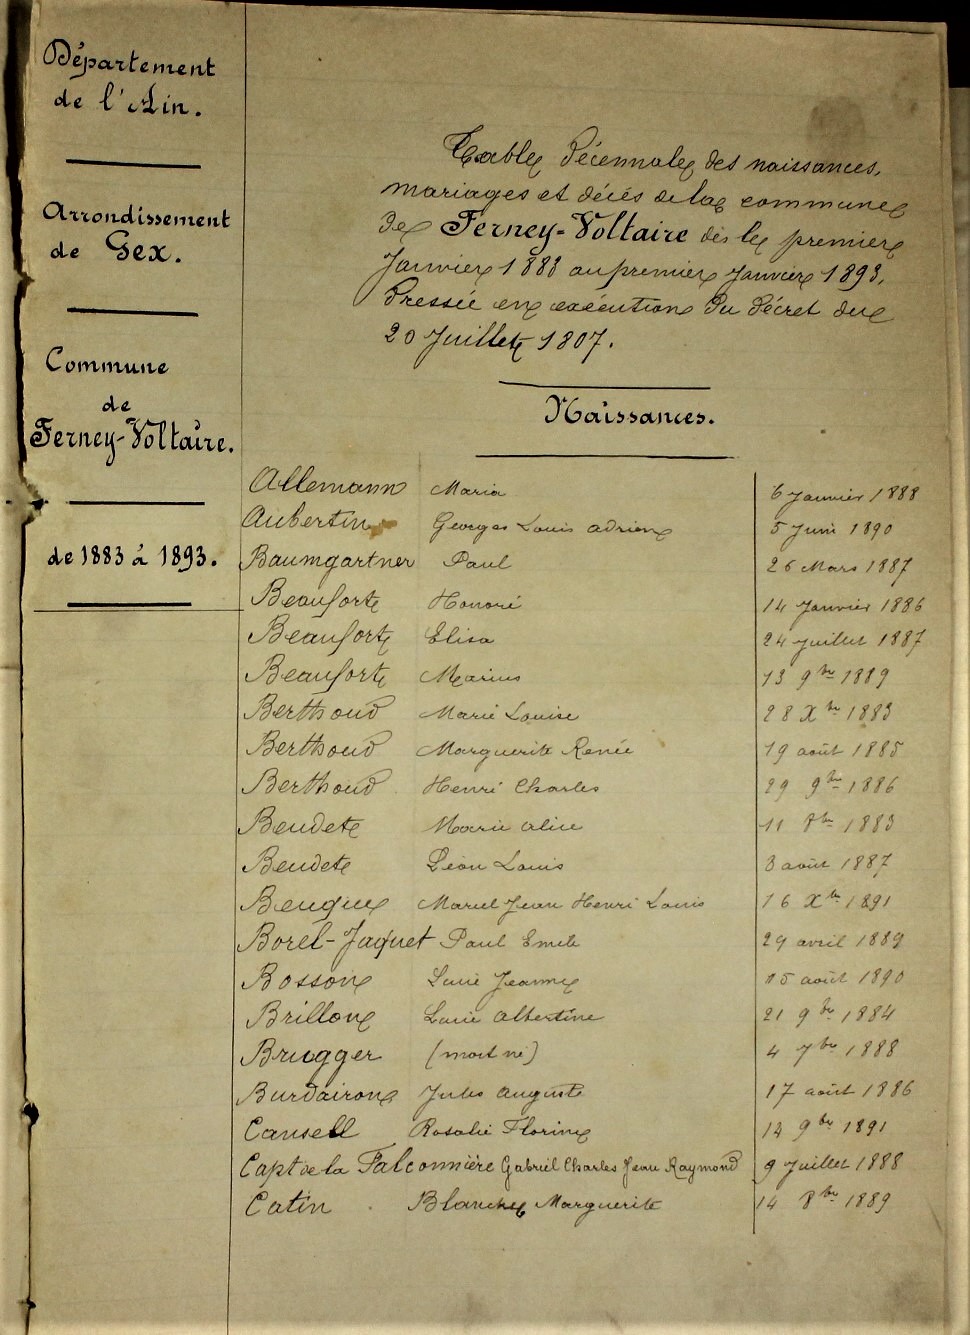 Département
de l'Ain.
Arrondissement
de Gex.
Commune
de
Ferney-Voltaire.
de 1883 à 1893.
Table Décennale des naissances,
mariages et décès de la commune
de Ferney-Voltaire dès le premier
Janvier 1883 au premier Janvier 1893,
Dressée en exécution du décret du
20 Juillet 1807.
Naissances.
Allemann Maria 6 Janvier 1888
Aubertin Georges Louis Adrien 5 Juin 1890
Baumgartner Paul 26 Mars 1887
Beaufort Honoré 14 Janvier 1886
Beaufort Elisa 24 Juillet 1887
Beaufort Marius 13 9bre 1889
Berthoud Marie Louise 28 Xbre 1883
Berthoud Marguerite Renée 19 août 1885
Berthoud Henri Charles 29 9bre 1886
Beudet Marie Alice 11 8bre 1883
Beudet Léon Louis 3 août 1887
Beugue Marcel Jean Henri Louis 16 Xbre 1891
Borel-Jaquet Paul Emile 29 avril 1889
Bosson Jeanne 15 août 1890
Brillon Albertine 21 9bre 1884
Brugger (mort né) 4 7bre 1888
Burdairon Jules Auguste 17 août 1886
Cansell Rosalie Florine 14 9bre 1891
Capt de la Falconnière Gabriel Charles Jean Raymond 9 Juillet 1888
Catin Blanche Marguerite 14 8bre 1889